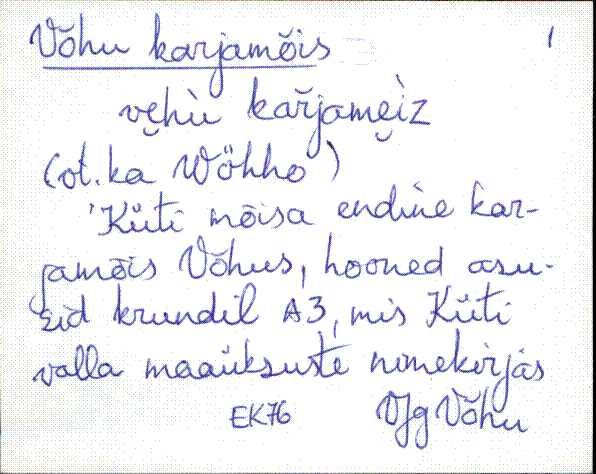 Võhu karjamõis 1
ve̮hù kaŕjame̮ìz
(ot. ka Wöhho)
'Küti mõisa endine kar-
jamõis Võhus, hooned asu-
sid krundil A3, mis Küti
valla maaüksuste nimekirjas
EK76 VJg Võhu